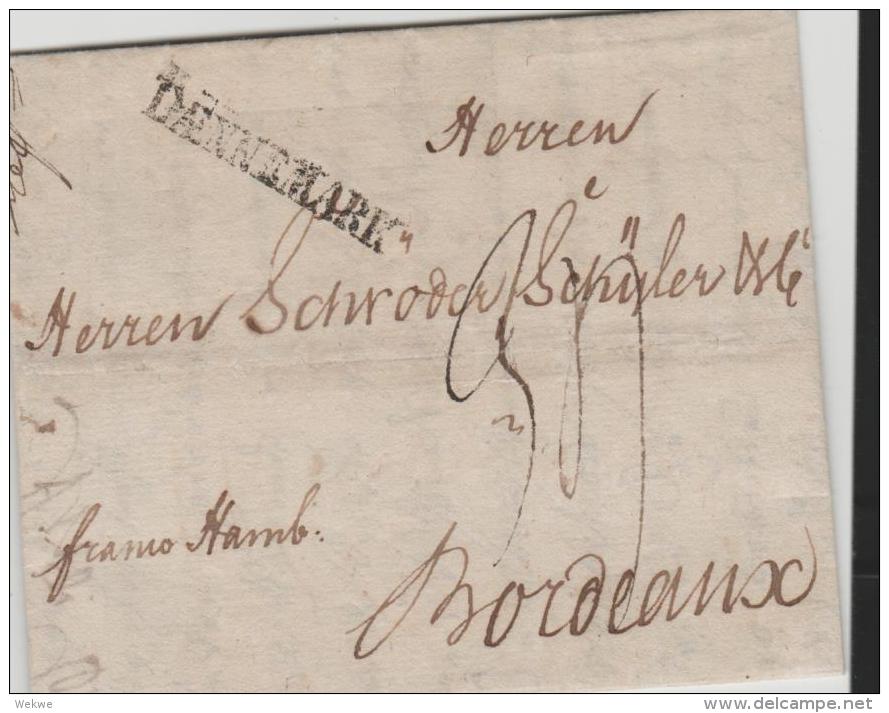 DÆNNEMARK
Herren
Herren Schröder Schüler & Ce
39
franco Hamb.
Bordeaux
Wekwe
www.delcampe.net